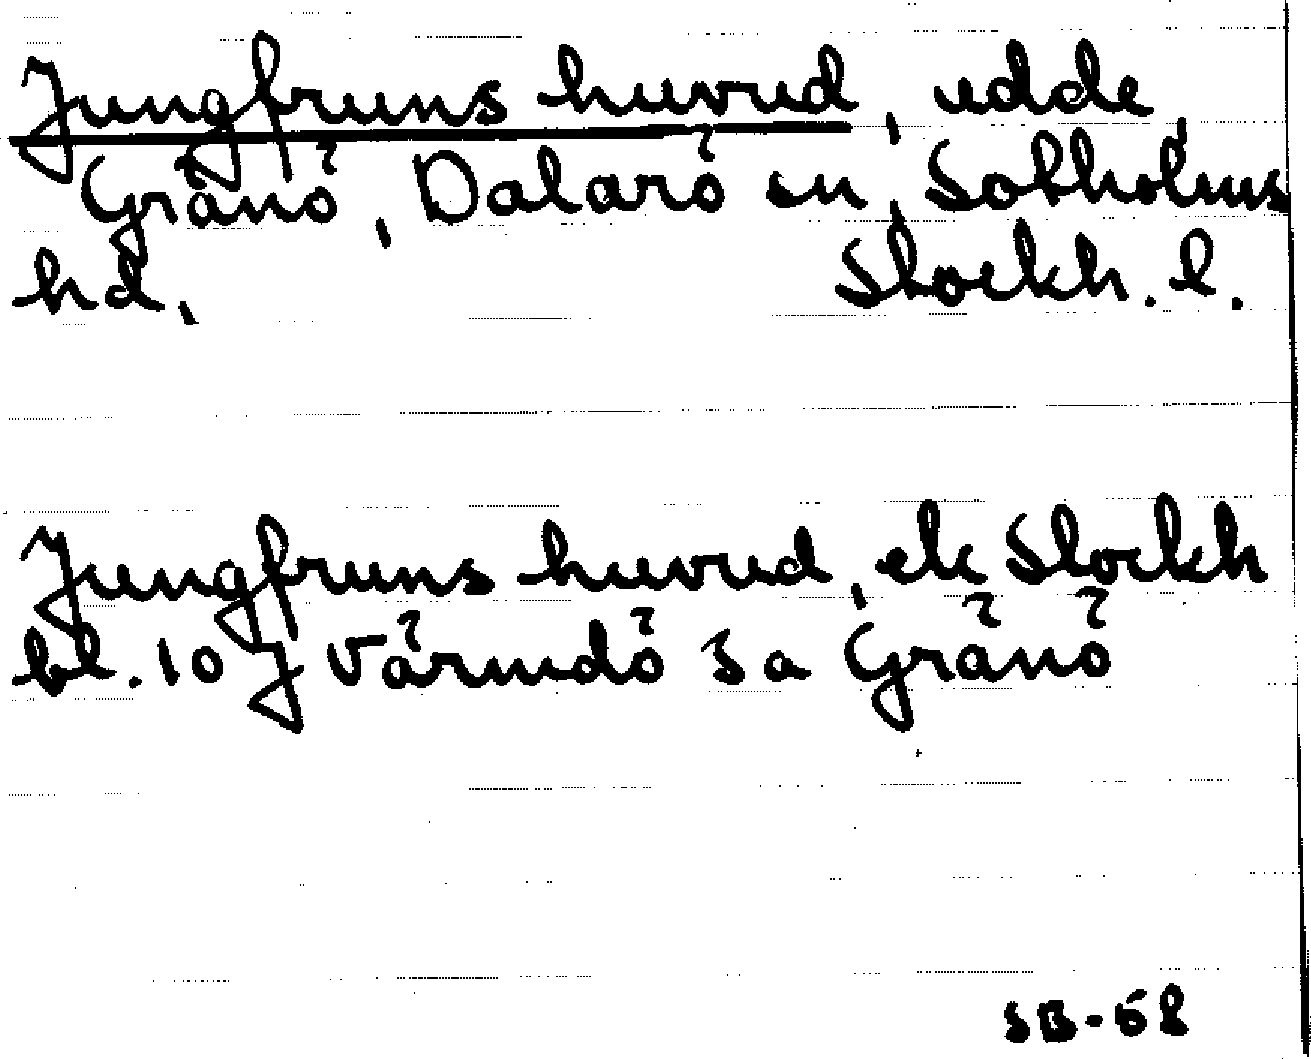 Jungfruns huvud, udde
Gränö, Dalarö sn, Sotholms
hd. Stockh. l.
Jungfruns huvud, ek Stockh
bl. 10 J Värmdö 3 a Gränö
SB-68